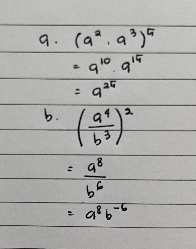 a. (a² · a³)⁵
= a¹⁰ · a¹⁵
= a²⁵
b. (a⁴/b³)²
= a⁸/b⁶
= a⁸b⁻⁶